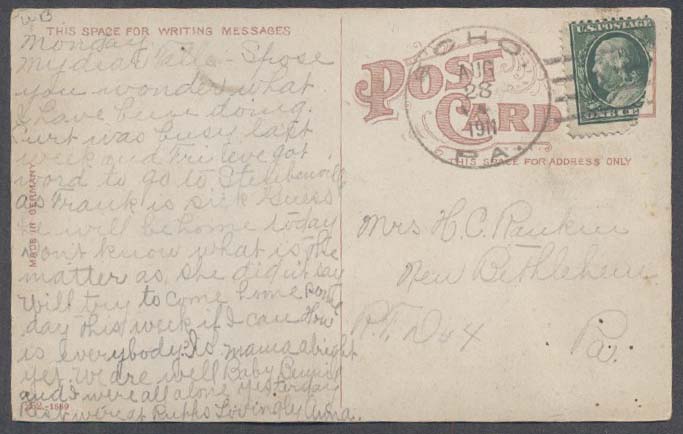 THIS SPACE FOR WRITING MESSAGES
Monday
My dear - Spose
you wonder what
I have been doing.
Curt was busy last
week and Fri eve got
word to go to Steubenville
as Frank is sick Guess
he will be home today
Don't know what is the
matter as she didn't say
Will try to come home some
day this week if I can How
is everybody? Is mama alright
yet. We are well Baby
and I were all alone yesterday
Rest were at Ruths Lovingly Anna.
MADE IN GERMANY
POST CARD
AUG
28
1911
PA.
THIS SPACE FOR ADDRESS ONLY
U.S. POSTAGE
Mrs H. C. Rankin
New Bethlehem
R.F.D. #4
Pa.